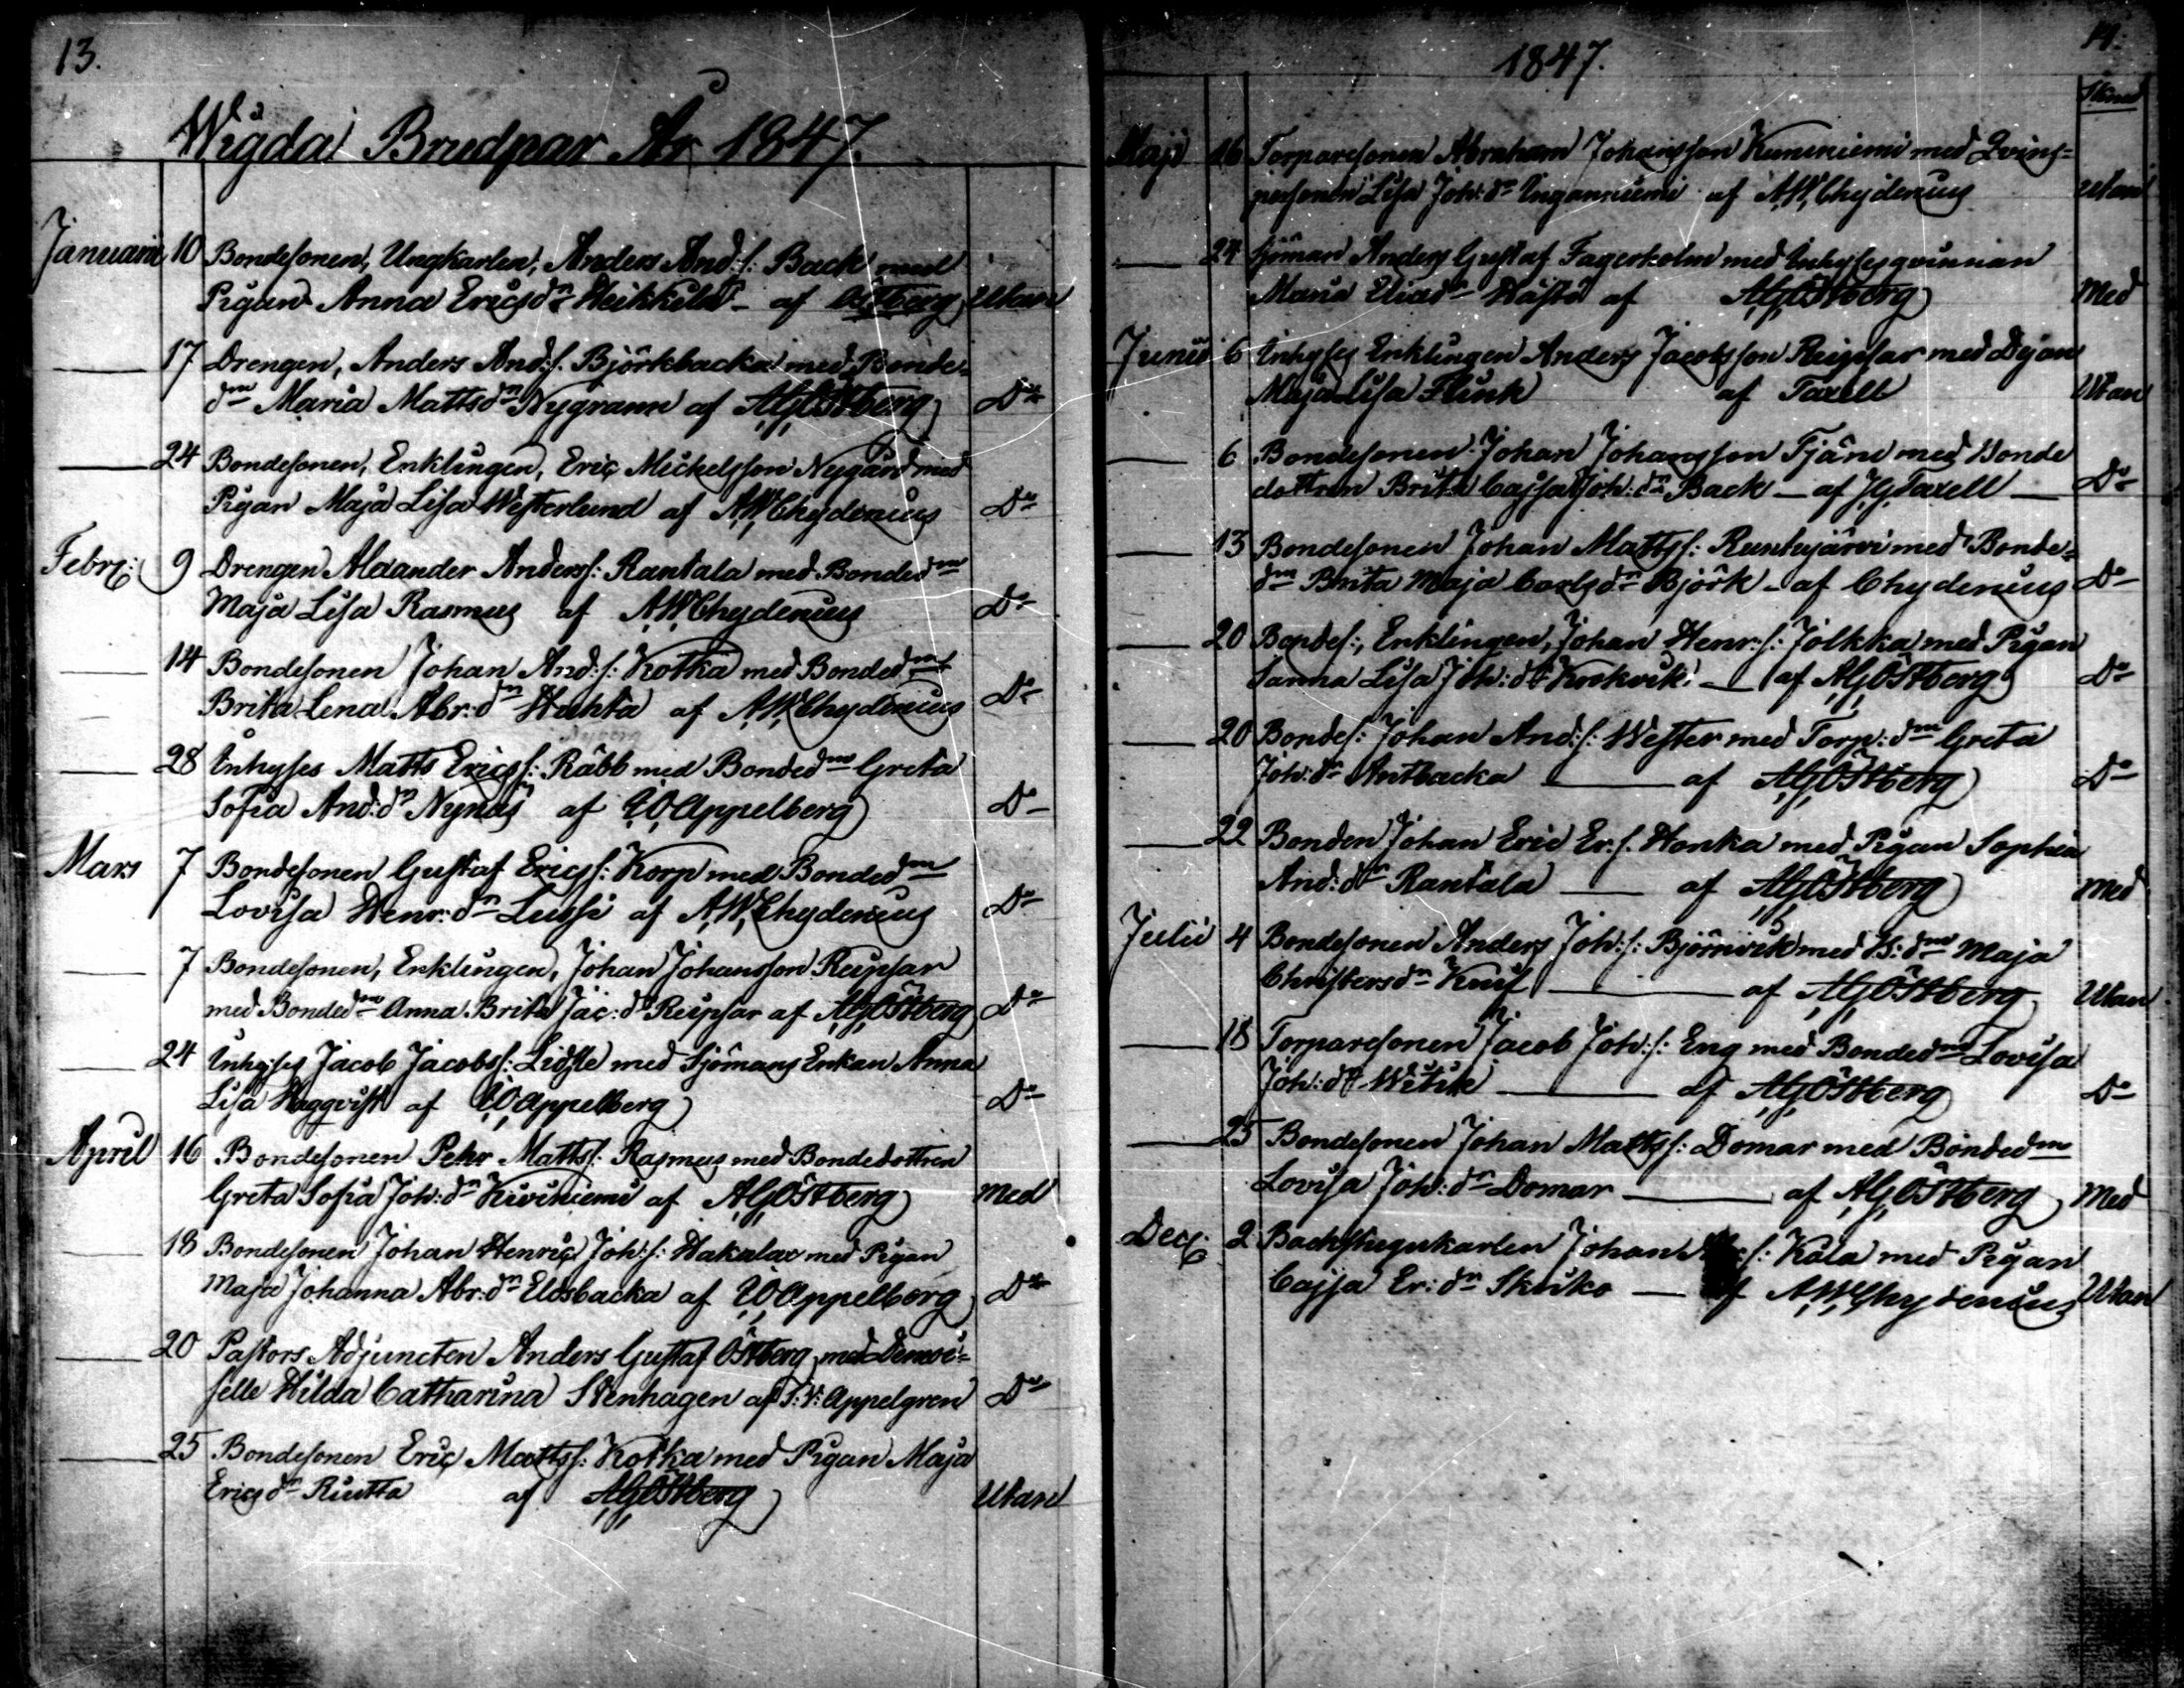 13.
Wigda Brudpar År 1847.
Januarii 10 Bondesonen, Ungkarlen, Anders And:s: Back med
Pigan Anna Ericsdr Heikkilä - af Östberg Utan
17 Drengen, Anders And:s. Björkbacka med Bonde-
dn Maria Mattsdr Nygrann af A,G,Östberg Do
24 Bondesonen, Enklingen, Eric Mickelsson Nygård med
Pigan Maja Lisa Westerlund af A,W,Chydenius Do
Febr: 9 Drengen Alexander Anderss: Rantala med Bondedn
Maja Lisa Rasmus af A,W,Chydenius Do
14 Bondesonen Johan And:s: Kotka med Bondedn
Brita Lena Abr:dr Huhta af A,W,Chydenius Do
Nyborg
28 Inhyses Matts Ericss: Räbb med Bondedn Greta
Sofia And:dr Nynäs af Appelberg Do
Mars 7 Bondesonen Gustaf Ericss: Korp med Bondedn
Lovisa Henr:dr Lussi af A,W,Chydenius Do
7 Bondesonen, Enklingen, Johan Johansson Ruipsar
med Bondedn Anna Brita Jac:dr Ruipsar af A,G,Östberg Do
24 Inhyses Jacob Jacobss: med Sjömans Enkan Anna
Lisa Haggvist af Appelberg Do
April 16 Bondesonen Pehr Mattss: Rasmus med Bondedottren
Greta Sofia Joh:dr Kiviniemi af A,G,Östberg Med
18 Bondesonen Johan Henric Joh:s: Hakalax med Pigan
Maja Johanna Abr:dr Eldsbacka af Appelberg Do
20 Pastors Adjuncten Anders Gustaf Östberg, med Demoi-
selle Hilda Catharina Stenhagen af Appelgren Do
25 Bondesonen Eric Mattss: Kotka med Pigan Maja
Ericsdr Ruutta af A,G,Östberg Utan
1847.
14.
Maji 16 Torparesonen Abraham Johansson Kumeniemi med Qvins-
personen Lisa Joh:dr af A,W,Chydenius Utan
24 Sjöman Anders Gustaf Fagerholm med Inhysesqvinnan
Maria Eliædr Hästö af A,G,Östberg Med
Junii 6 Inhyses Enklingen Anders Jacobsson Ruipsar med Dejan
Maja Lisa Flink af Taxell Utan
6 Bondesonen Johan Johansson Tjäru med Bonde
dottren Brita Cajsa Joh:dr Back - af J,G,Taxell Do
13 Bondesonen Johan Mattss: Ruuhijärvi med Bonde-
dn Brita Maja Carlsdr Björk - af Chydenius Do
20 Bondes:, Enklingen, Johan Henr:s: Jolkka med Pigan
Sanna Lisa Joh:dr Krokvik - af A,G,Östberg Do
20 Bondes: Johan And:s: Wester med Torp:dn Greta
Joh:dr Antbacka af A,G,Östberg Do
22 Bonden Johan Eric Er.s. Honka med Pigan Sophia
And:dr Rantala af A,G,Östberg Med
Julii 4 Bondesonen Anders Joh:s: Björnvik med B:dn Maja
Christersdr Knif af A,G,Östberg Utan
18 Torparesonen Jacob Joh:s: Eng med Bondedn Lovisa
Joh:dr Witik af A,G,Östberg Do
25 Bondesonen Johan Mattss: Domar med Bondedn
Lovisa Joh:dr Domar af A,G,Östberg Med
Dec: 2 Backstugukarlen Johan s: Kåla med Pigan
Cajsa Er:dr Skriko - af A,W,Chydenius Utan